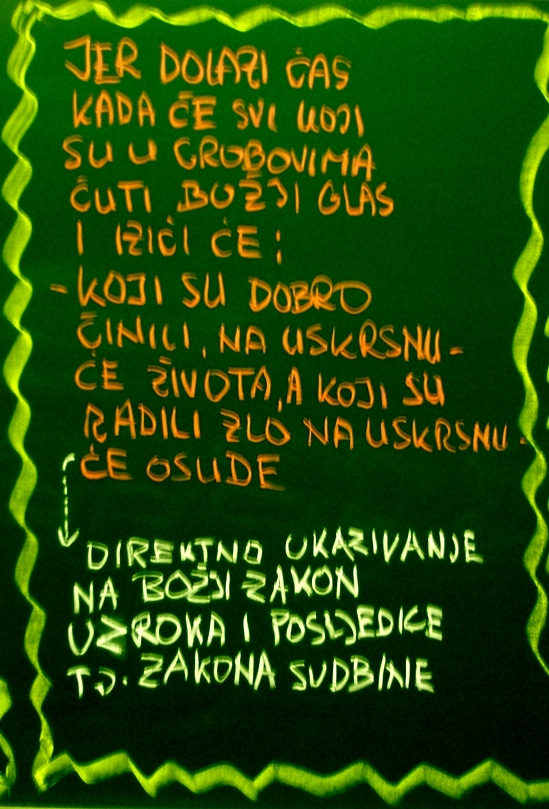 JER DOLAZI ČAS
KADA ĆE SVI KOJI
SU U GROBOVIMA
ČUTI BOŽJI GLAS
I IZIĆI ĆE:
-KOJI SU DOBRO
ČINILI, NA USKRSNU-
ĆE ŽIVOTA, A KOJI SU
RADILI ZLO NA USKRSNU-
ĆE OSUDE
DIREKTNO UKAZIVANJE
NA BOŽJI ZAKON
UZROKA I POSLJEDICE
TJ. ZAKONA SUDBINE